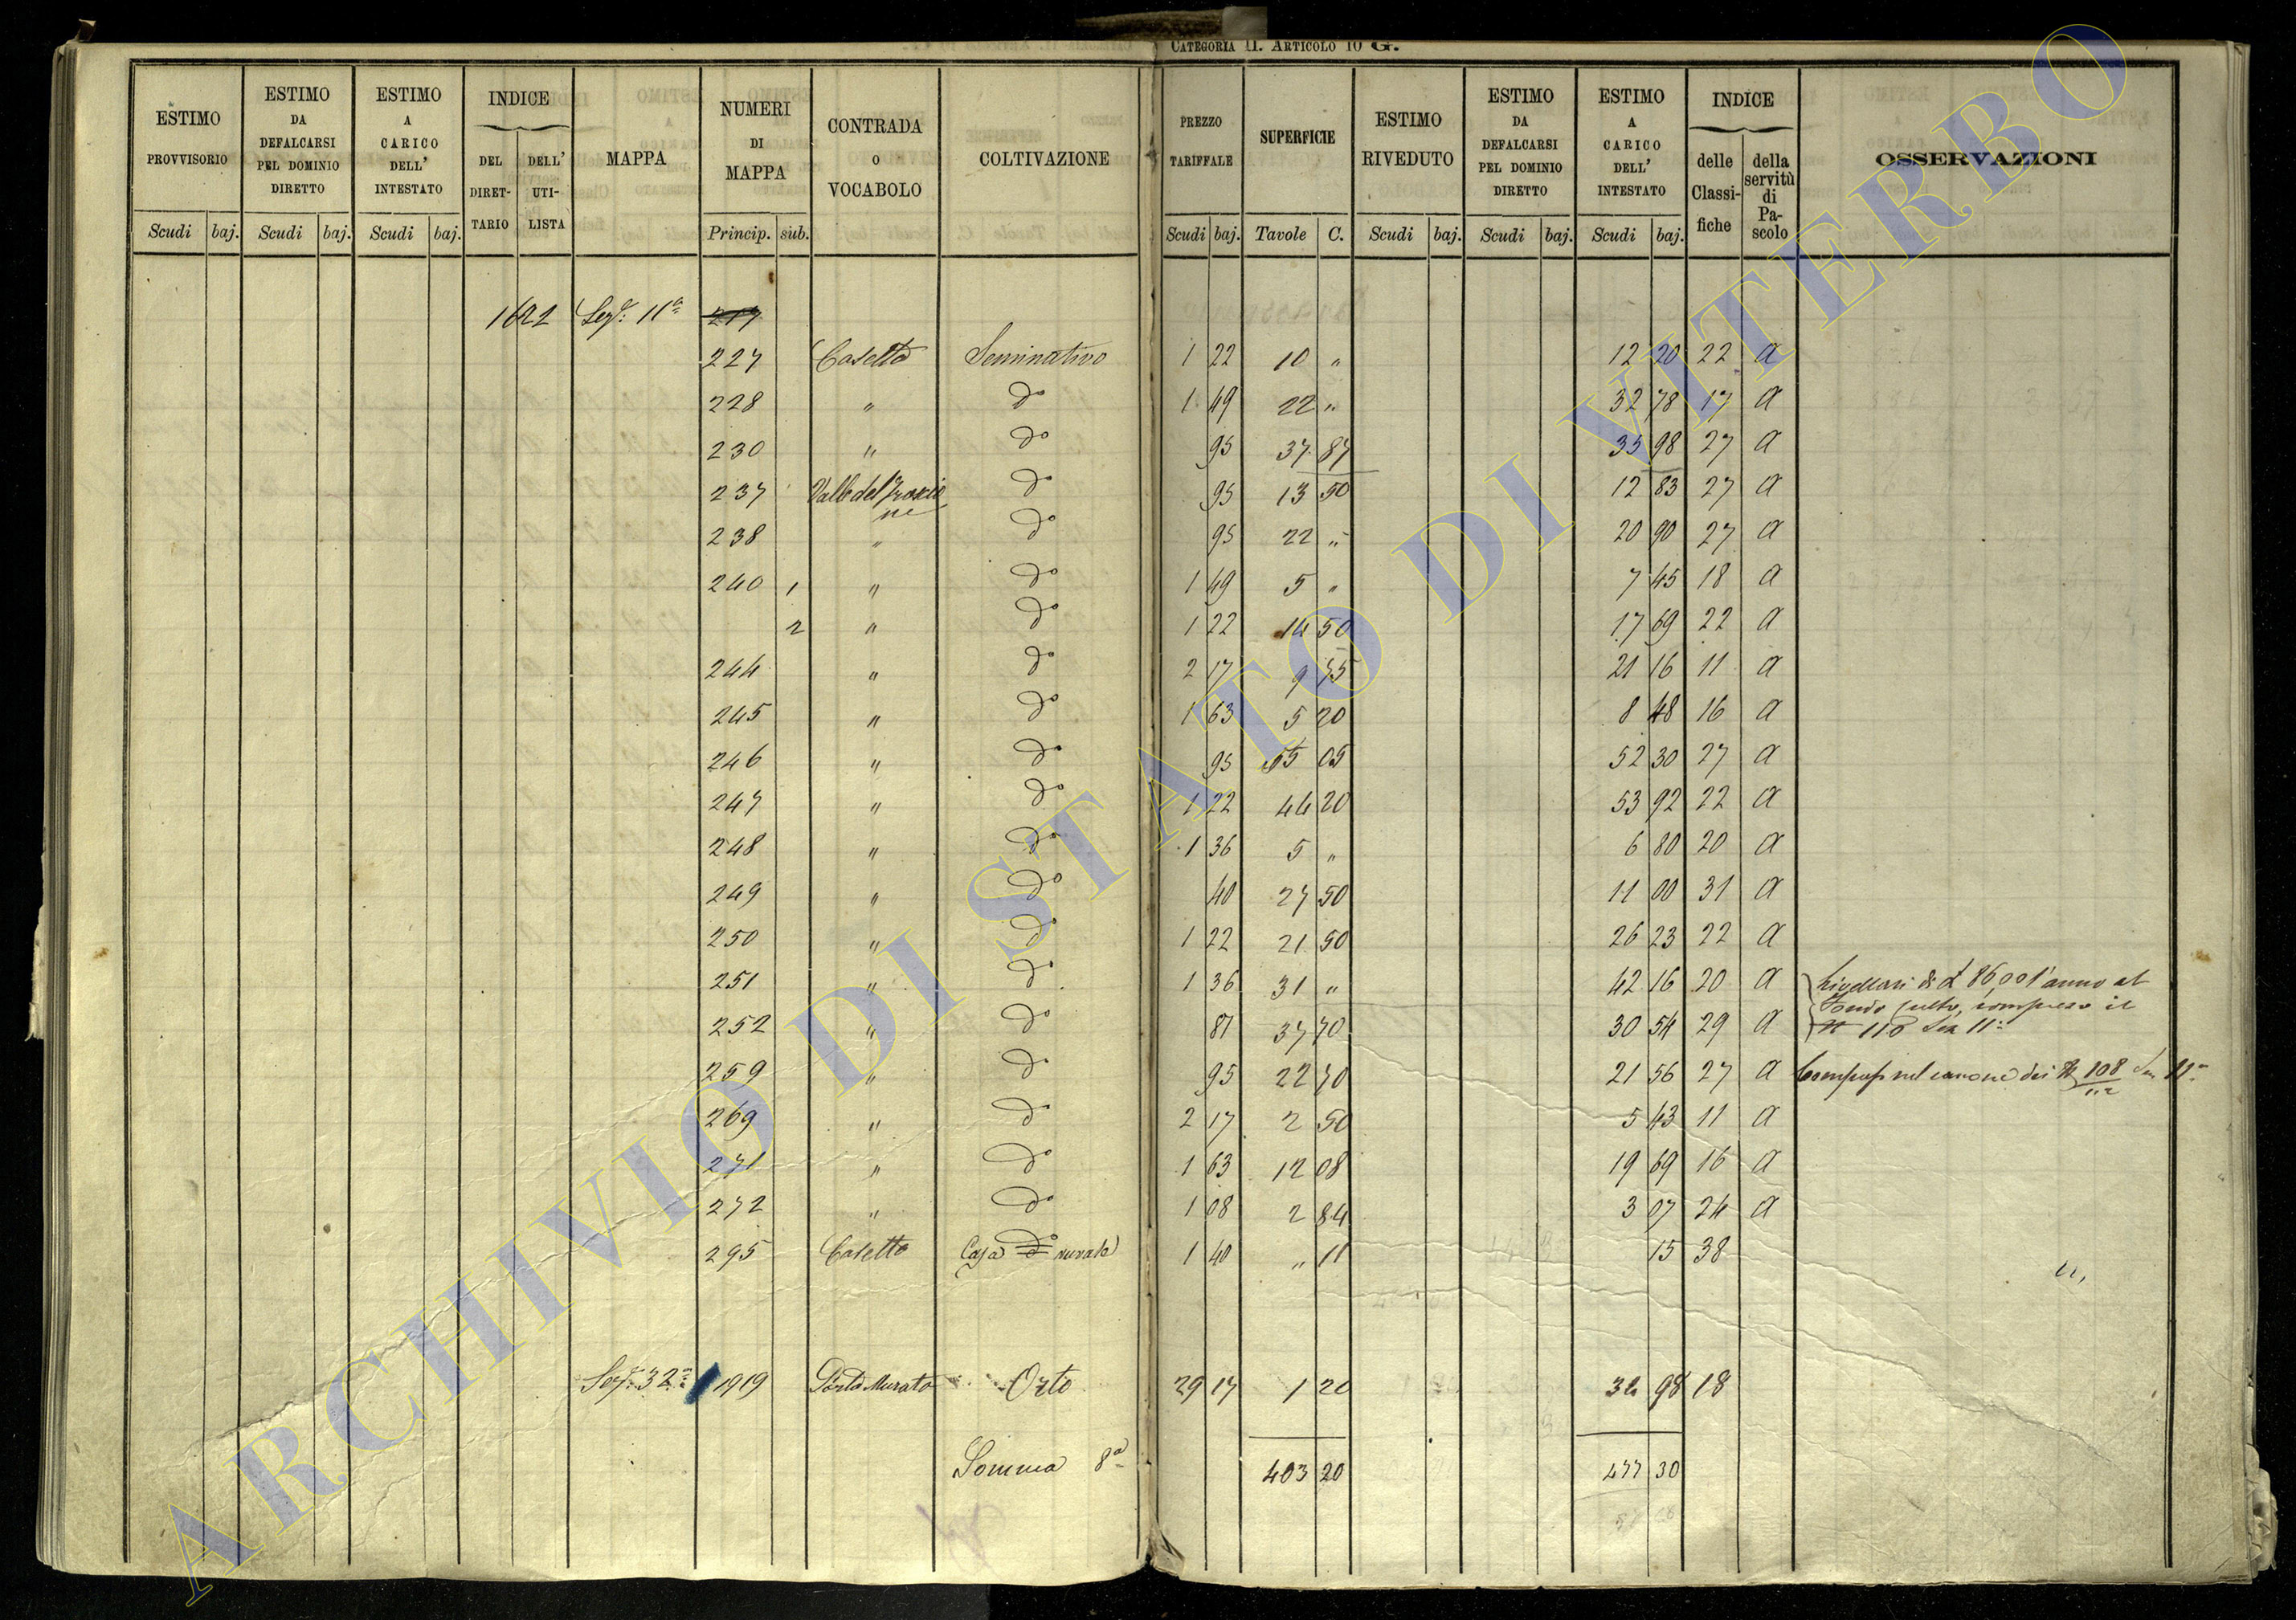 CATEGORIA II. ARTICOLO 10 G.
ESTIMO PROVVISORIO | ESTIMO DA DEFALCARSI PEL DOMINIO DIRETTO | ESTIMO A CARICO DELL' INTESTATO | INDICE DEL DIRETTARIO | DELL' UTILISTA | MAPPA | NUMERI DI MAPPA | CONTRADA O VOCABOLO | COLTIVAZIONE | PREZZO TARIFFALE | SUPERFICIE | ESTIMO RIVEDUTO | ESTIMO DA DEFALCARSI PEL DOMINIO DIRETTO | ESTIMO A CARICO DELL' INTESTATO | INDICE delle Classifiche | della servitù di Pascolo | OSSERVAZIONI
Scudi baj. Scudi baj. Scudi baj. Princip. sub. Scudi baj. Tavole C. Scudi baj. Scudi baj. Scudi baj.
1622 Sez: 11a 217
227 Casetta Seminativo 1 22 10 " 12 20 22 a
228 " do 1 49 22 " 32 78 17 a
230 " do 95 37 87 35 98 27 a
237 Valle del do 95 13 50 12 83 27 a
238 " do 95 22 " 20 90 27 a
240 1 " do 1 49 5 " 7 45 18 a
2 " do 1 22 14 50 17 69 22 a
244 " do 2 17 9 75 21 16 11 a
245 " do 1 63 5 20 8 48 16 a
246 " do 95 55 05 52 30 27 a
247 " do 1 22 44 20 53 92 22 a
248 " do 1 36 5 " 6 80 20 a
249 " do 40 27 50 11 00 31 a
250 " do 1 22 21 50 26 23 22 a
251 " do 1 36 31 " 42 16 20 a Livellari di £ 86,00 l'anno al
Fondo Culto, compreso il
252 " do 81 37 70 30 54 29 a N 118 Sez 11a
259 " do 95 22 70 21 56 27 a Compreso nel canone dei N 108 11a
112
269 " do 2 17 2 50 5 43 11 a
271 " do 1 63 12 08 19 69 16 a
272 " do 1 08 2 84 3 07 24 a
295 Casetta Casa do rurale 1 40 " 11 15 38
Sez: 32a 1919 Porta Murata Orto 29 17 1 20 34 98 18
Somma 8a 403 20 477 30
ARCHIVIO DI STATO DI VITERBO